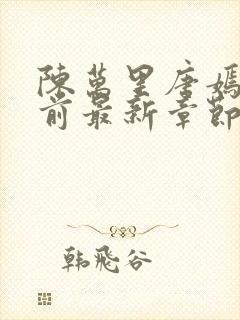 陳萬里唐嫣
前最新章節
韩飛谷